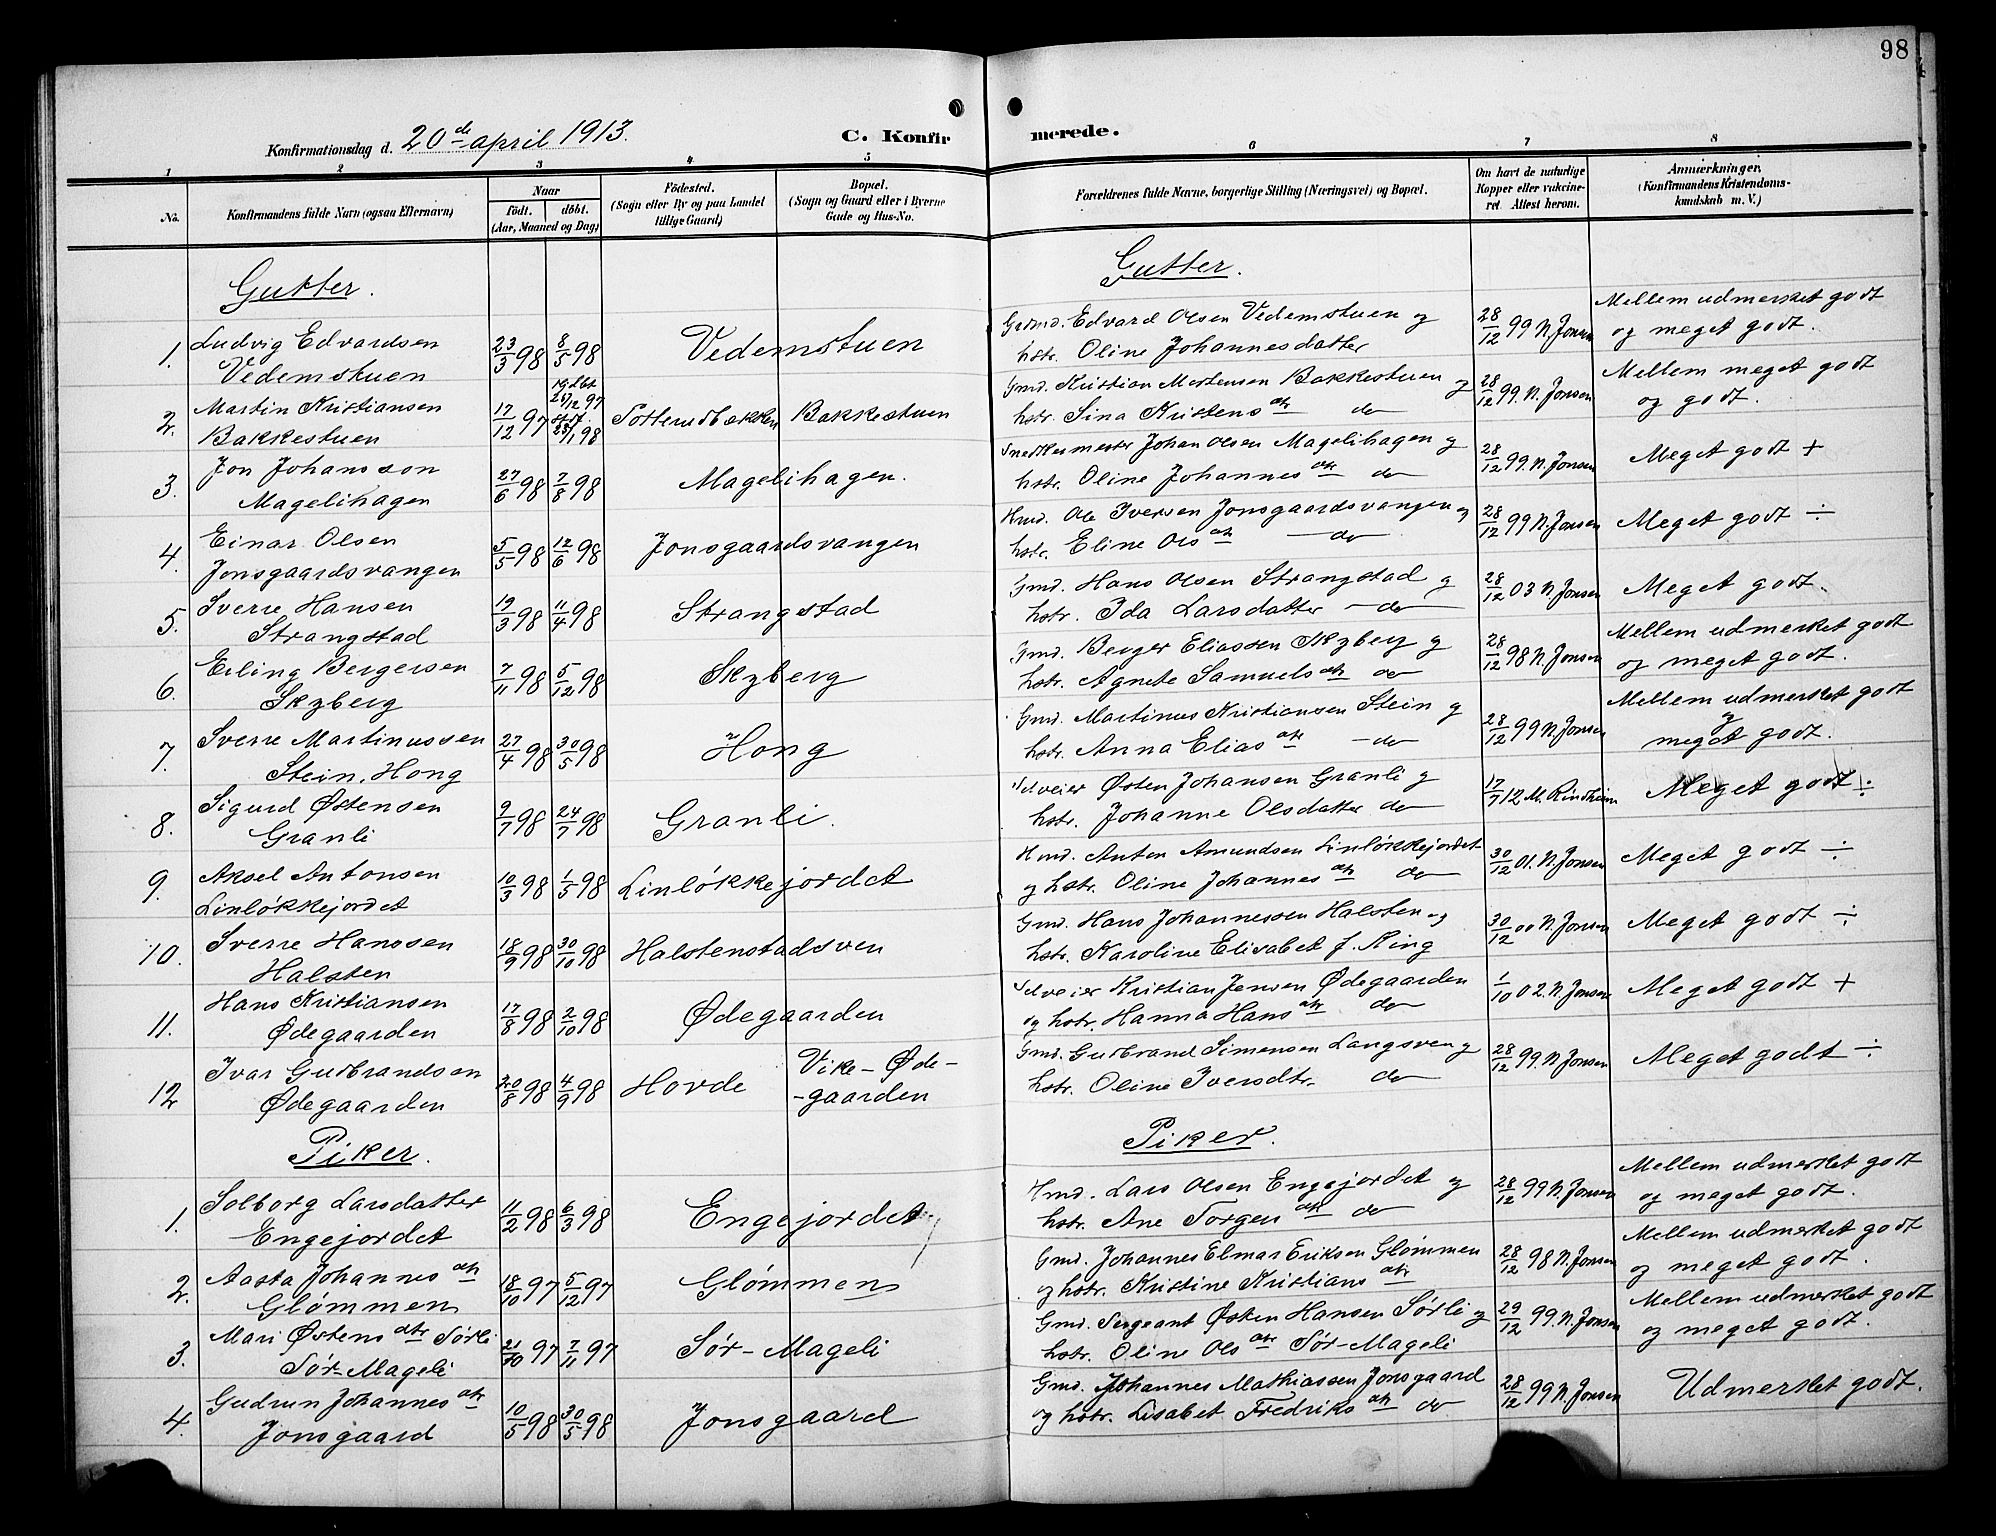 98
Konfirmationsdag d. 20de april 1913.
C. Konfirmerede.
1 2 3 4 5 6 7 8
No.
Konfirmandens fulde Navn (ogsaa Efternavn)
Naar
födt. döbt.
(Aar, Maaned og Dag)
Födested.
(Sogn eller By og paa Landet
tillige Gaard)
Bopæl.
(Sogn og Gaard eller i Byerne
Gade og Hus-No.
Forældrenes fulde Navne, borgerlige Stilling (Næringsvei) og Bopæl.
Om havt de naturlige
Kopper eller vakcine-
ret Attest herom.
Anmærkninger.
(Konfirmandens Kristendoms-
kundskab m. V.)
Gutter. Gutter.
1. Ludvig Edvardsen Vedemstuen 23/3 98 8/5 98 Vedemstuen
Grdmd. Edvard Olsen Vedemstuen og
hstr. Oline Johannesdatter
28/12 99 N. Jonsen
Mellem udmerket godt
og meget godt.
2. Martin Kristiansen Bakkestuen 17/12 97 26/12 97 23/1 98 Bakkestuen
Gmd. Kristian Mortensen Bakkestuen og
hstr. Sina Kristens dtr do
28/12 99. N. Jonsen
Mellem meget godt
og godt.
3. Jon Johansson Magelihagen 27/6 98 7/8 98 Magelihagen.
Snedkermester Johan Olsen Magelihagen og
hstr. Oline Johannes dtr do
28/12 99. N. Jonsen
Meget godt +
4. Einar Olsen Jonsgaardsvangen 5/5 98 12/6 98 Jonsgaardsvangen
Hmd. Ole Iversen Jonsgaardsvangen og
hstr. Eline Ols dtr do
28/12 99 N. Jonsen
Meget godt ÷
5. Sverre Hansen Strangstad 19/3 98 11/4 98 Strangstad
Gmd. Hans Olsen Strangstad og
hstr. Ida Larsdatter do
28/12 03 N. Jonsen
Meget godt.
6. Erling Bergersen Skyberg 7/11 98 5/12 98 Skyberg
Gmd. Berger Eliassen Skyberg og
hstr. Agnete Samuels dtr do
28/12 98 N. Jonsen
Mellem udmerket godt
og meget godt.
7. Sverre Martinussen Stein, Hong 27/4 98 30/5 98 Hong
Gmd. Martinus Kristiansen Stein og
hstr. Anna Elias dtr do
28/12 99 N. Jonsen
Mellem udmerket godt
og
meget godt.
8. Sigurd Østensen Granli 9/7 98 24/7 98 Granli.
Selveier Østen Johansen Granli og
hstr. Johanne Olsdatter do
17/7 12 M. Rindheim
Meget godt ÷
9. Aksel Antonsen Linløkkejordet 10/3 98 1/5 98 Linløkkejordet
Hmd. Anton Amundsen Linløkkejordet
og hstr. Oline Johannes dtr do
30/12 01. N. Jonsen
Meget godt ÷
10. Sverre Hanssen Halsten 18/9 98 30/10 98 Halstenstadsven
Gmd. Hans Johannessen Halsten og
hstr. Karoline Elisabet f. Ring
30/12 00 N. Jonsen
Meget godt ÷
11. Hans Kristiansen Ødegaarden 17/8 98 2/10 98 Ødegaarden
Selveier Kristian Jensen Ødegaarden
og hstr. Hanna Hans dtr do
1/10 02. N. Jonsen
Meget godt +
12 Ivar Gudbrandsen Ødegaarden 20/8 98 4/9 98 Hovde Vike-Øde-
-gaarden
Gmd. Gudbrand Simensen Langsven og
hstr. Oline Iversdtr. do
28/12 99. N. Jonsen
Meget godt ÷
Piker. Piker.
1. Solborg Larsdatter Engejordet 11/2 98 6/3 98 Engejordet
Hmd. Lars Olsen Engejordet og
hstr. Ane Torgers dtr do
28/12 99 N. Jonsen
Mellem udmerket godt
og meget godt.
2. Aasta Johannes dtr Glømmen 18/10 97 5/12 97 Glømmen
Gmd. Johannes Elmar Eriksen Glømmen
og hstr. Kristine Kristians dtr
28/12 98 N. Jonsen
Mellem udmerket godt
og meget godt.
3. Mari Østens dtr Sørli Sør-Mageli 21/10 97 7/11 97 Sør-Mageli
Gmd. Sergeant Østen Hansen Sørli og
hstr. Oline Ols dtr Sør-Mageli
29/12 99. N. Jonsen
Mellem udmerket godt
og meget godt.
4. Gudrun Johannes dtr Jonsgaard 10/5 98 30/5 98 Jonsgaard
Gmd. Johannes Mathiassen Jonsgaard
og hstr. Lisabet Fredriks dtr do
28/12 99 N. Jonsen
Udmerket godt.